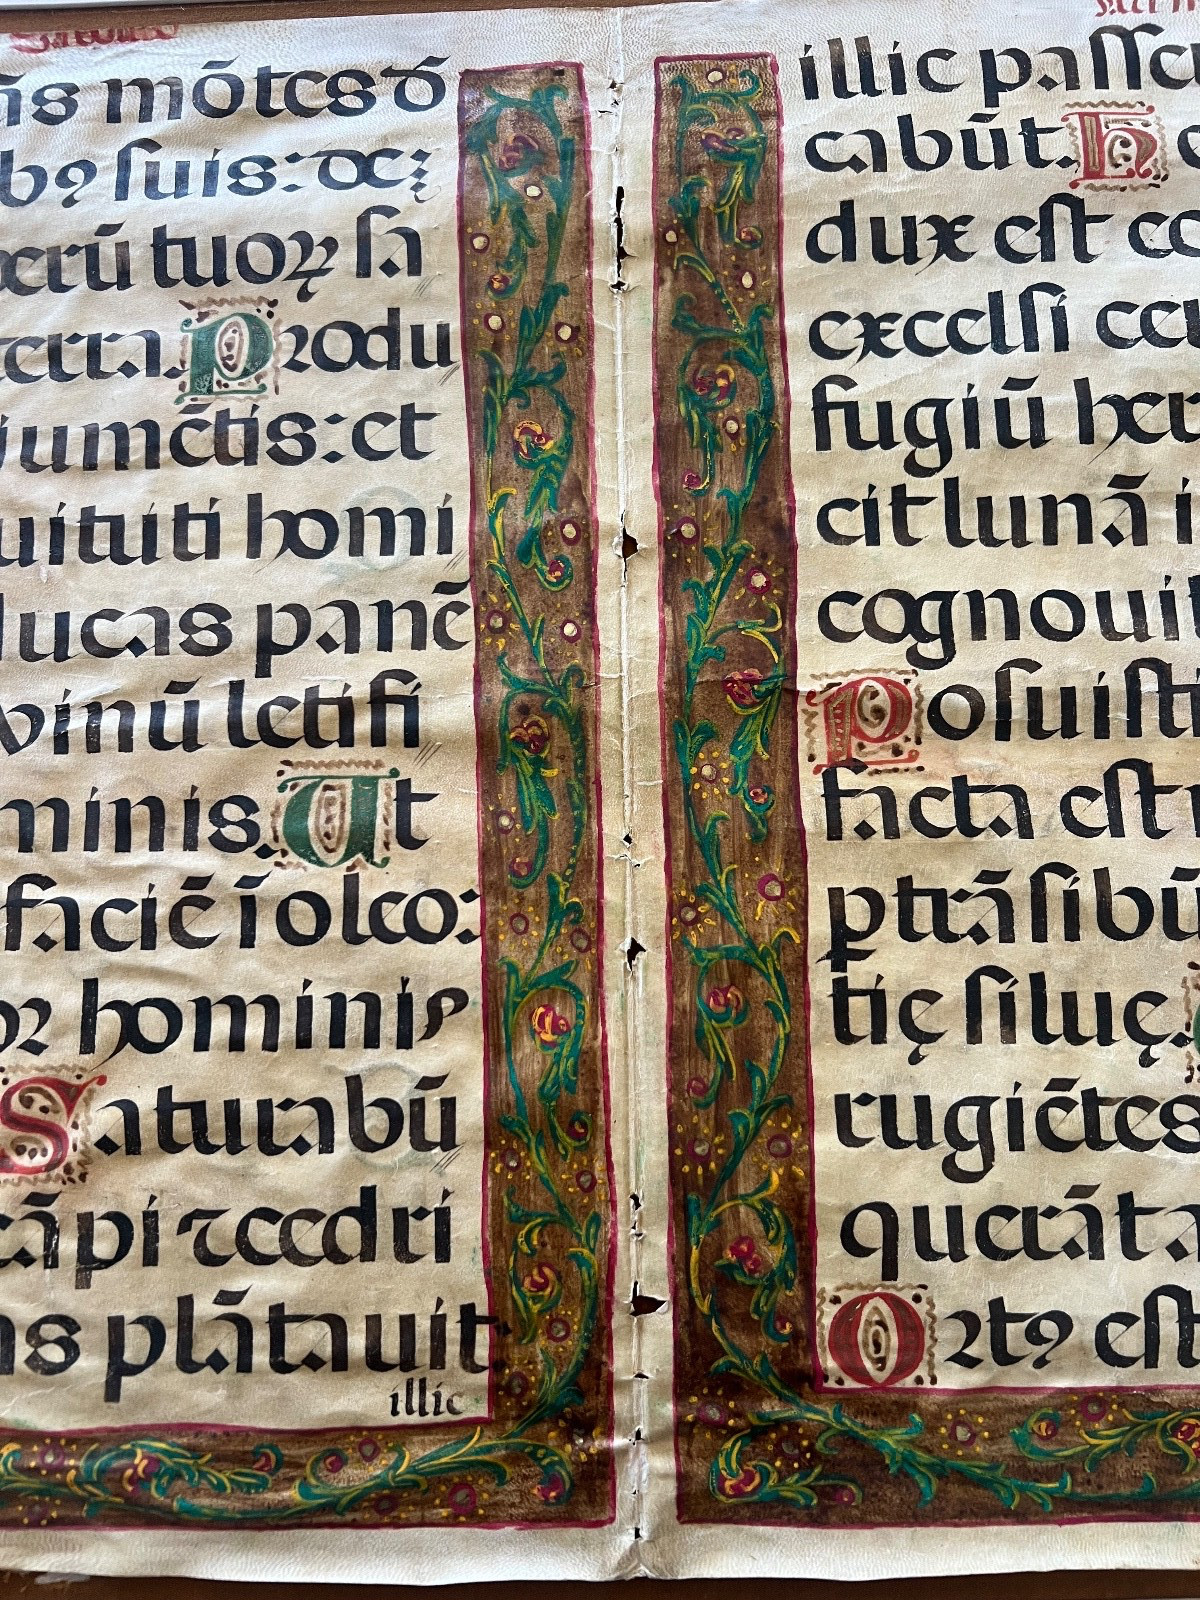 ãs mõtes d̃
bꝯ suis: de
erũ tuoꝝ sa
terra. Produ
iumẽtis: et
uituti homi
lucas panẽ
vinũ letifi
minis. Ut
faciẽ ĩ oleo:
oꝛ hominis
Saturabũ
cãpi ⁊ cedri
as plãtauit
illic
illic passe
cabũt. H
dux est eo
excelsi cer
fugiũ her
cit lunã i
cognouit
Posuisti
facta est
ptrãsibũ
tię siluę.
rugiẽtes
querãt a
Ortꝯ est